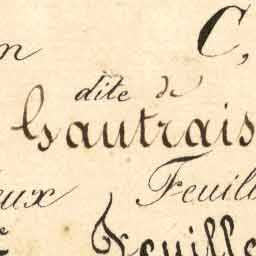 n C,
dite de
Gautrais
eux Feuill
Feuille